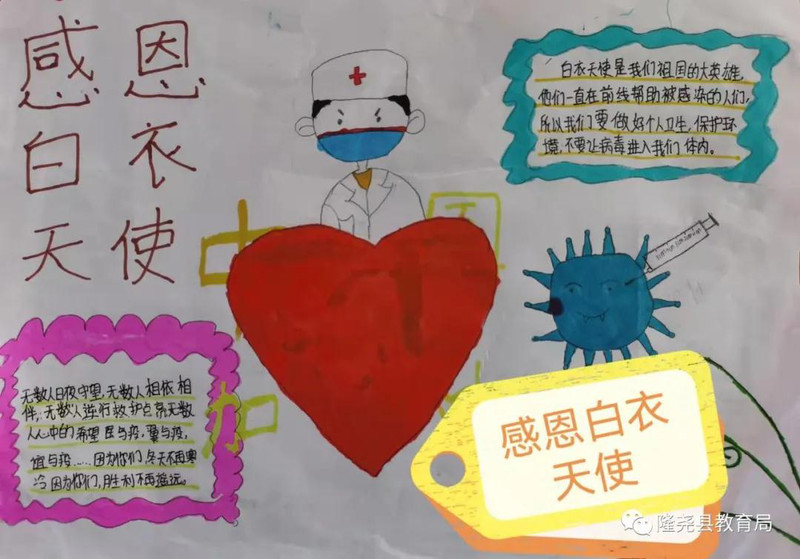 感恩
白衣
天使
白衣天使是我们祖国的大英雄,
他们一直在前线帮助被感染的人们,
所以我们要做好个人卫生,保护环
境,不要让病毒进入我们体内。
中国
加
无数人日夜守望,无数人相依相
伴,无数人逆行救护点亮无数
人心中的希望医与疫,翼与疫,
谊与疫……因为你们冬天不再寒
冷因为你们,胜利不再遥远。
感恩白衣
天使
隆尧县教育局